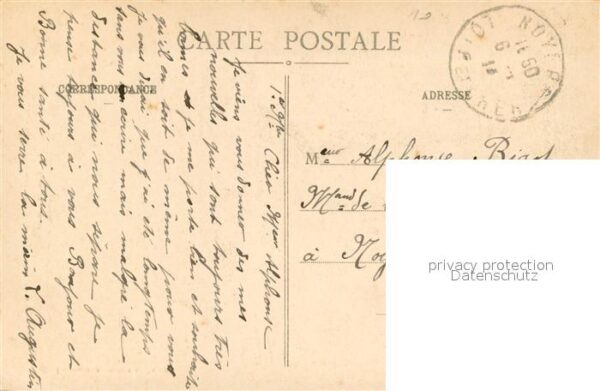 CARTE POSTALE
CORRESPONDANCE
ADRESSE
NOYERS
LOIR-ET-CHER
Cher Mr Alphonse
Je viens vous donner des mes
nouvelles qui sont toujours très
bonnes et je me porte bien et souhaite
qu'il en soit de même pour vous
je vous dirai que j'ai été longtemps
sans vous écrire mais malgré la
distance qui nous sépare je
pense toujours à vous Bonjour et
Bonne santé à tous.
Je vous serre la main Augustin
Alphonse
Mand de
à Noy
privacy protection
Datenschutz